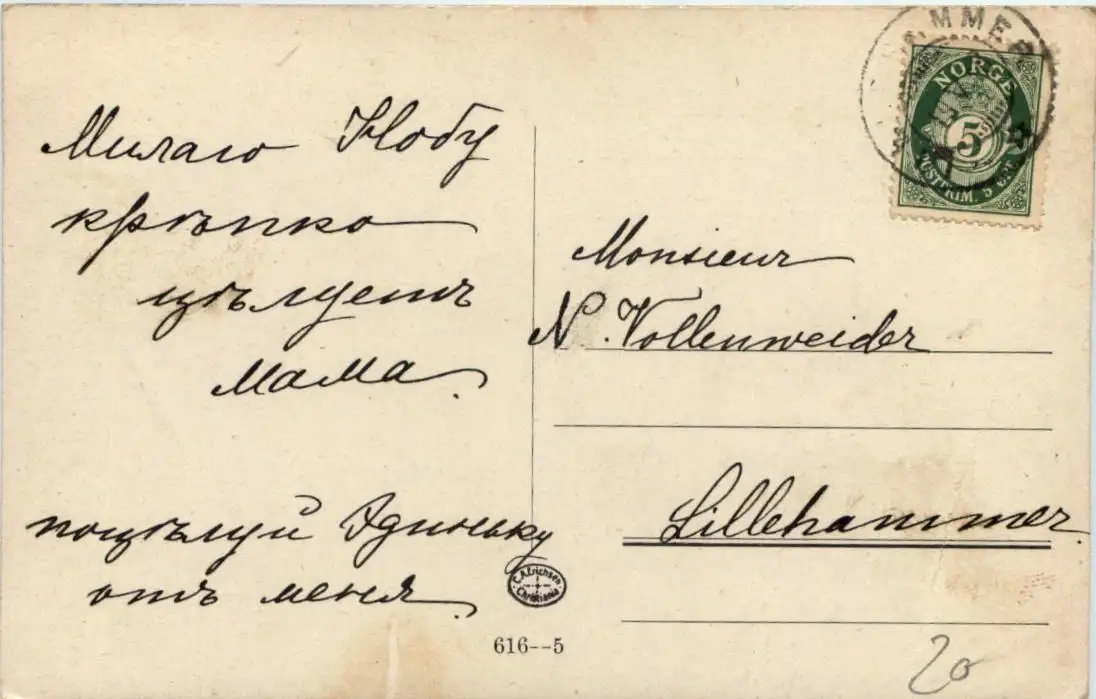 Милаго Нобу
крѣпко
цѣлуетъ
мама.
поцѣлуй Эдиньку
отъ меня
C.A. Erichsen
Christiania
616--5
NORGE
5
POSTFRIM. 5 ØRE
Monsieur
N. Vollenweider
Lillehammer.
20